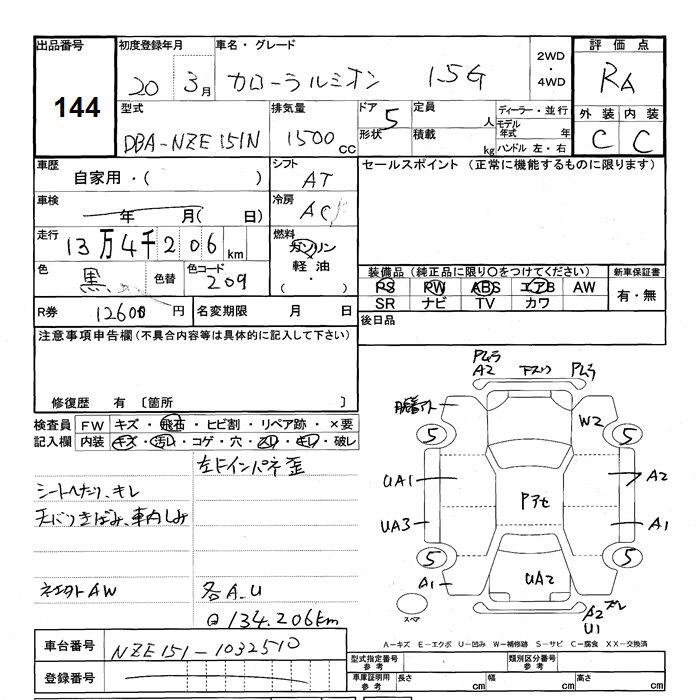 出品番号 初度登録年月 車名・グレード 評価点
144 20 3月 カローラルミオン 1.5G 2WD・4WD RA
型式 排気量 ドア 5 形状 定員 人 積載 kg ディーラー・並行 モデル年式 年 ハンドル 左・右 外装 内装
DBA-NZE151N 1500cc C C
車歴 自家用・( ) シフト AT セールスポイント (正常に機能するものに限ります)
車検 年 月( 日) 冷房 AC
走行 13万4千206km 燃料 ガソリン 軽油 ( ・ )
色 黒 色替 色コード 209 装備品 (純正品に限り〇をつけてください) 新車保証書
PS PW ABS エアB AW 有・無
SR ナビ TV カワ
R券 12600円 名変期限 月 日 後日品
注意事項申告欄(不具合内容等は具体的に記入して下さい)
修復歴 有 〔箇所 〕
検査員記入欄 FW キズ・飛石・ヒビ割・リペア跡・×要
内装 キズ・汚レ・コゲ・穴・ソリ・キレ・破レ
シートヘタリ、キレ
天バリきばみ、車内しみ
AW
各A.U
134.206km
Pムラ A2 下スリ Pムラ
W2
5 5
UA1 A2
Pアセ
UA3 A1
5 5
A1 UA2
スペア A2 U1
A－キズ E－エクボ U－凹み W－補修跡 S－サビ C－腐食 XX－交換済
車台番号 NZE151-1032510
登録番号
型式指定番号 参考 類別区分番号 参考
車庫証明用 参考 長さ cm 幅 cm 高さ cm